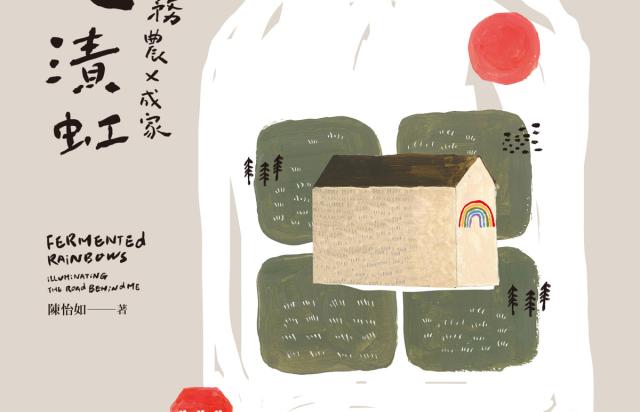 務農×成家
漬虹
FERMENTED
RAINBOWS
ILLUMINATING
THE ROAD BEHIND ME
陳怡如——著